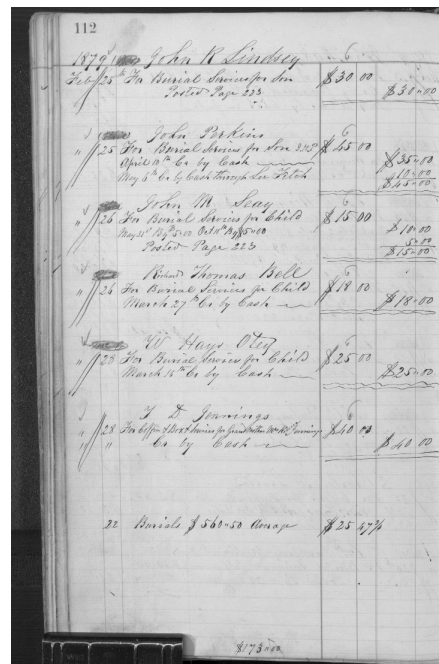 112
1879 John R Lindsey 6
Feby 25th For Burial Services for Son $30 00
Posted Page 223 $30.00
John Perkins 6
" 25 For Burial Services for Son $45 00
April 10th Cr by Cash $35.00
May 5th Cr by Cash through Fitch 10.00
$45.00
John M. Seay 6
26 For Burial Services for Child $15 00
May 31st By $5.00 Oct 11th By $5.00 $10.00
Posted Page 223 5.00
$15.00
Richard Thomas Bell 6
" 26 For Burial Services for Child $18 00
March 27th Cr by Cash $18.00
W Hays Otey 6
" 28 For Burial Services for Child $25 00
March 15th Cr by Cash $25.00
T D Jennings 6
" 28 For Coffin & Box & Services for Grand Jennings $40 00
" " Cr by Cash $40 00
22 Burials $560.50 Average $25 47¾
$173.00